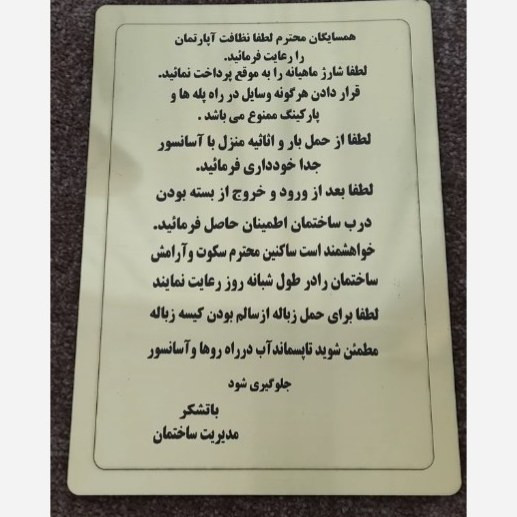 همسایگان محترم لطفا نظافت آپارتمان
را رعایت فرمائید.
لطفا شارژ ماهیانه را به موقع پرداخت نمائید.
قرار دادن هرگونه وسایل در راه پله ها و
پارکینگ ممنوع می باشد .
لطفا از حمل بار و اثاثیه منزل با آسانسور
جدا خودداری فرمائید.
لطفا بعد از ورود و خروج از بسته بودن
درب ساختمان اطمینان حاصل فرمائید.
خواهشمند است ساکنین محترم سکوت وآرامش
ساختمان رادر طول شبانه روز رعایت نمایند
لطفا برای حمل زباله ازسالم بودن کیسه زباله
مطمئن شوید تاپسماندآب درراه روها وآسانسور
جلوگیری شود
باتشکر
مدیریت ساختمان